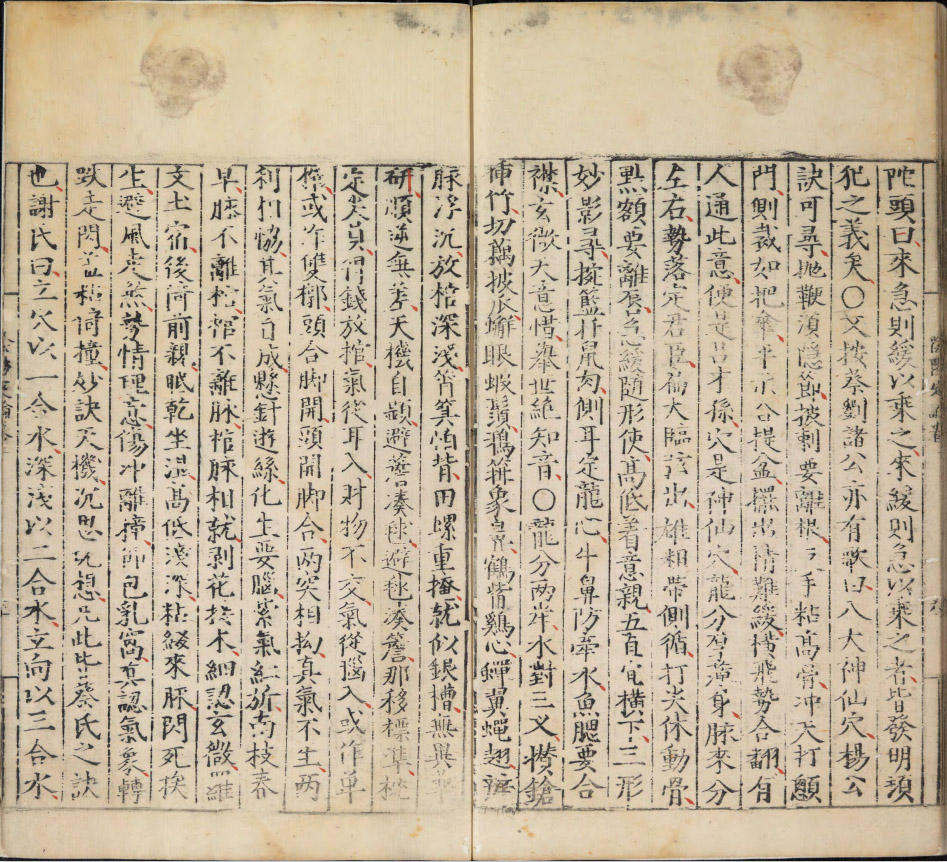 陀頭曰來急則緩以乘之來緩則急以乘之者皆發明須
犯之義矣〇又按蔡劉諸公亦有歌曰八大神仙穴楊公
訣可尋拋鞭須隱節披剌要離根下手粘高骨冲天打顖
門則裁如把傘平示公提盆擺出情難緩橫飛勢合翻有
人通此意便是呂才孫穴是神仙穴龍分厚薄身脉來分
左右勢落定君臣偏大臨弦出雄粗帶側循打尖休動骨
點額要離唇急緩隨形使高低着意親五直宜橫下三形
妙影尋擁籃扦鼠肉側耳定龍心牛鼻防牽水魚腮要合
襟玄微大意惜舉世絶知音〇龍分兩岸水對三叉攅鎗
揷竹切藕披瓜蠏眼蝦鬚鴉笄象鼻鶴觜鷄心蟬翼蝇翅辨
脉浮沉放棺深淺筲箕怕背田螺重掩就似銀槽無異
研順逆無差天機自顯避簷湊毬避毬湊簷那移標準
定尖員倒錢放棺氣從耳入財物不交氣從腦入或作單
或作雙槨頭合脚開頭開脚合兩突相拘真氣不生兩
利相恊其氣自成懸針遊絲化生要腦紫氣紅斾高枝春
早脉不離棺棺不離脉棺脉相就剥花接木細認玄微羅
文土宿後倚前親眠乾坐濕高低淺深粘綴來脉閃死挨
生避風走煞勢情理意傷冲離撞節包乳窩真認氣象轉
跌走閃盖粘倚撞妙訣天機沉思玩想凡此皆蔡氏之訣
也謝氏曰立穴以一合水深淺以二合水立向以三合水